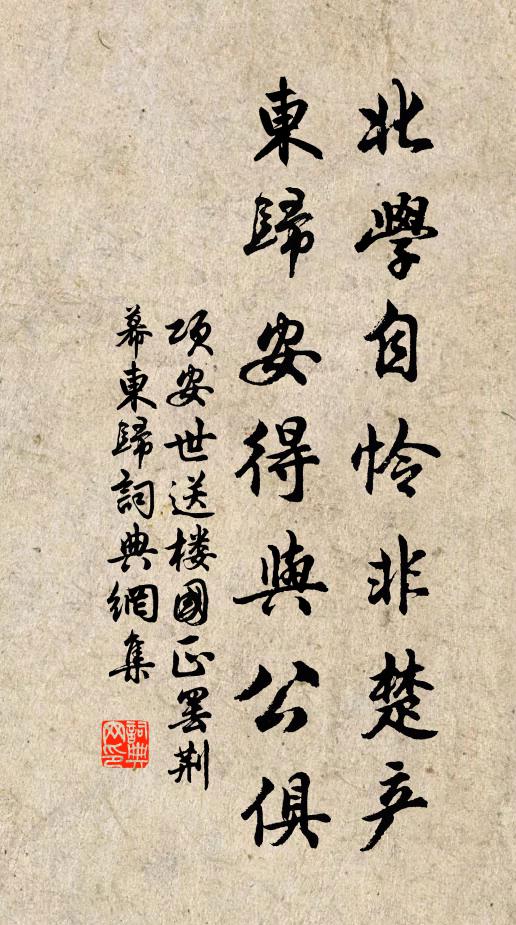 北學自怜非楚产
東歸安得與公俱
项安世送楼國正罢荆
幕東歸詞典網集
詞典文印